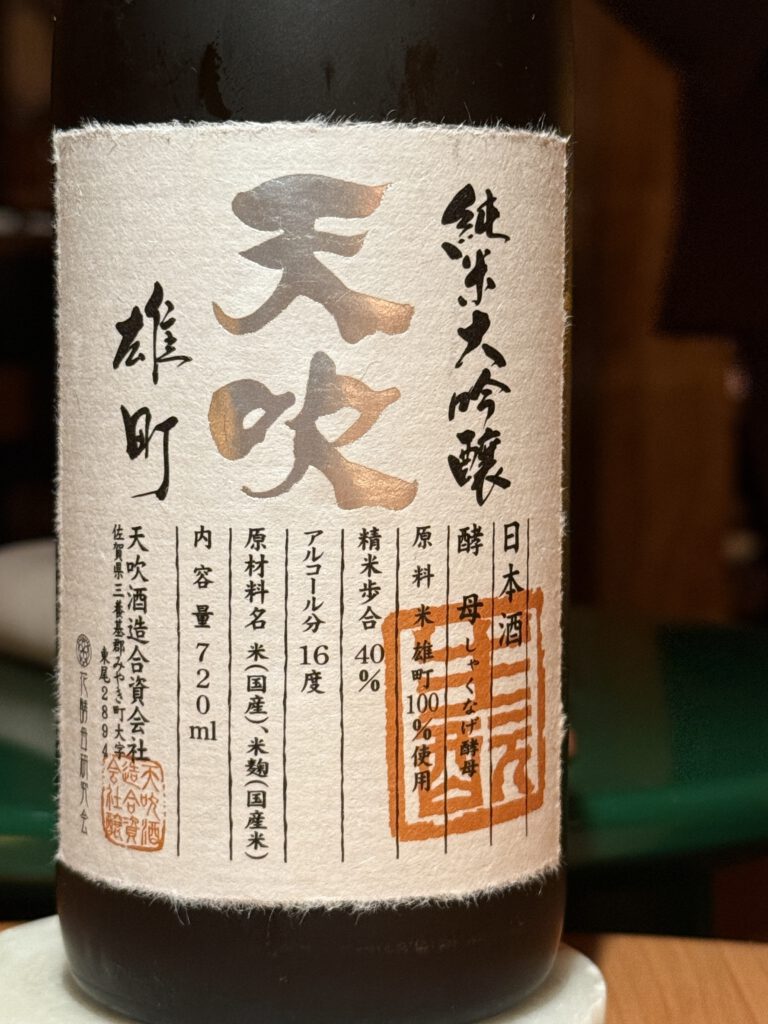 純米大吟醸
天吹
雄町
日本酒
酵母 しゃくなげ酵母
原料米 雄町100%使用
精米歩合 40%
アルコール分 16度
原材料名 米(国産)、米麹(国産米)
内容量 720ml
天吹酒造合資会社
佐賀県三養基郡みやき町大字
東尾2894
花酵母研究会
天吹酒
造合資
会社醸